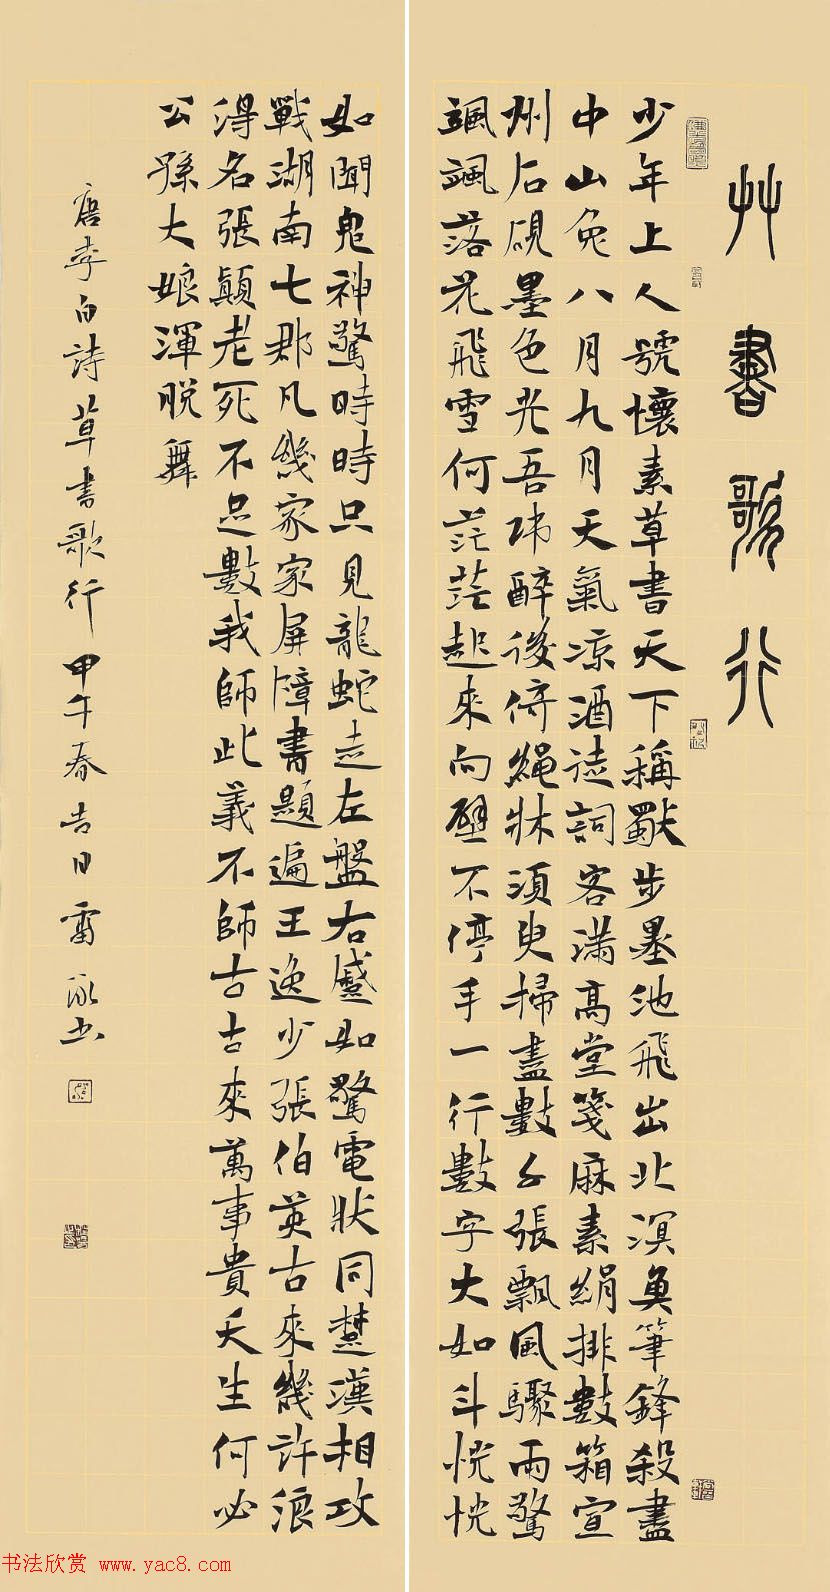 艸書歌行
少年上人號懷素草書天下稱獨步墨池飛出北溟魚筆鋒殺盡
中山兔八月九月天氣凉酒徒詞客滿高堂箋麻素絹排數箱宣
州石硯墨色光吾師醉後倚繩牀須臾掃盡數千張飄風驟雨驚
颯颯落花飛雪何茫茫起來向壁不停手一行數字大如斗怳怳
如聞鬼神驚時時只見龍蛇走左盤右蹙如驚電狀同楚漢相攻
戰湖南七郡凡幾家家屏障書題遍王逸少張伯英古來幾許浪
得名張顛老死不足數我師此義不師古古來萬事貴天生何必
公孫大娘渾脫舞
唐李白詩草書歌行甲午春吉日雷书
书法欣赏 www.yac8.com